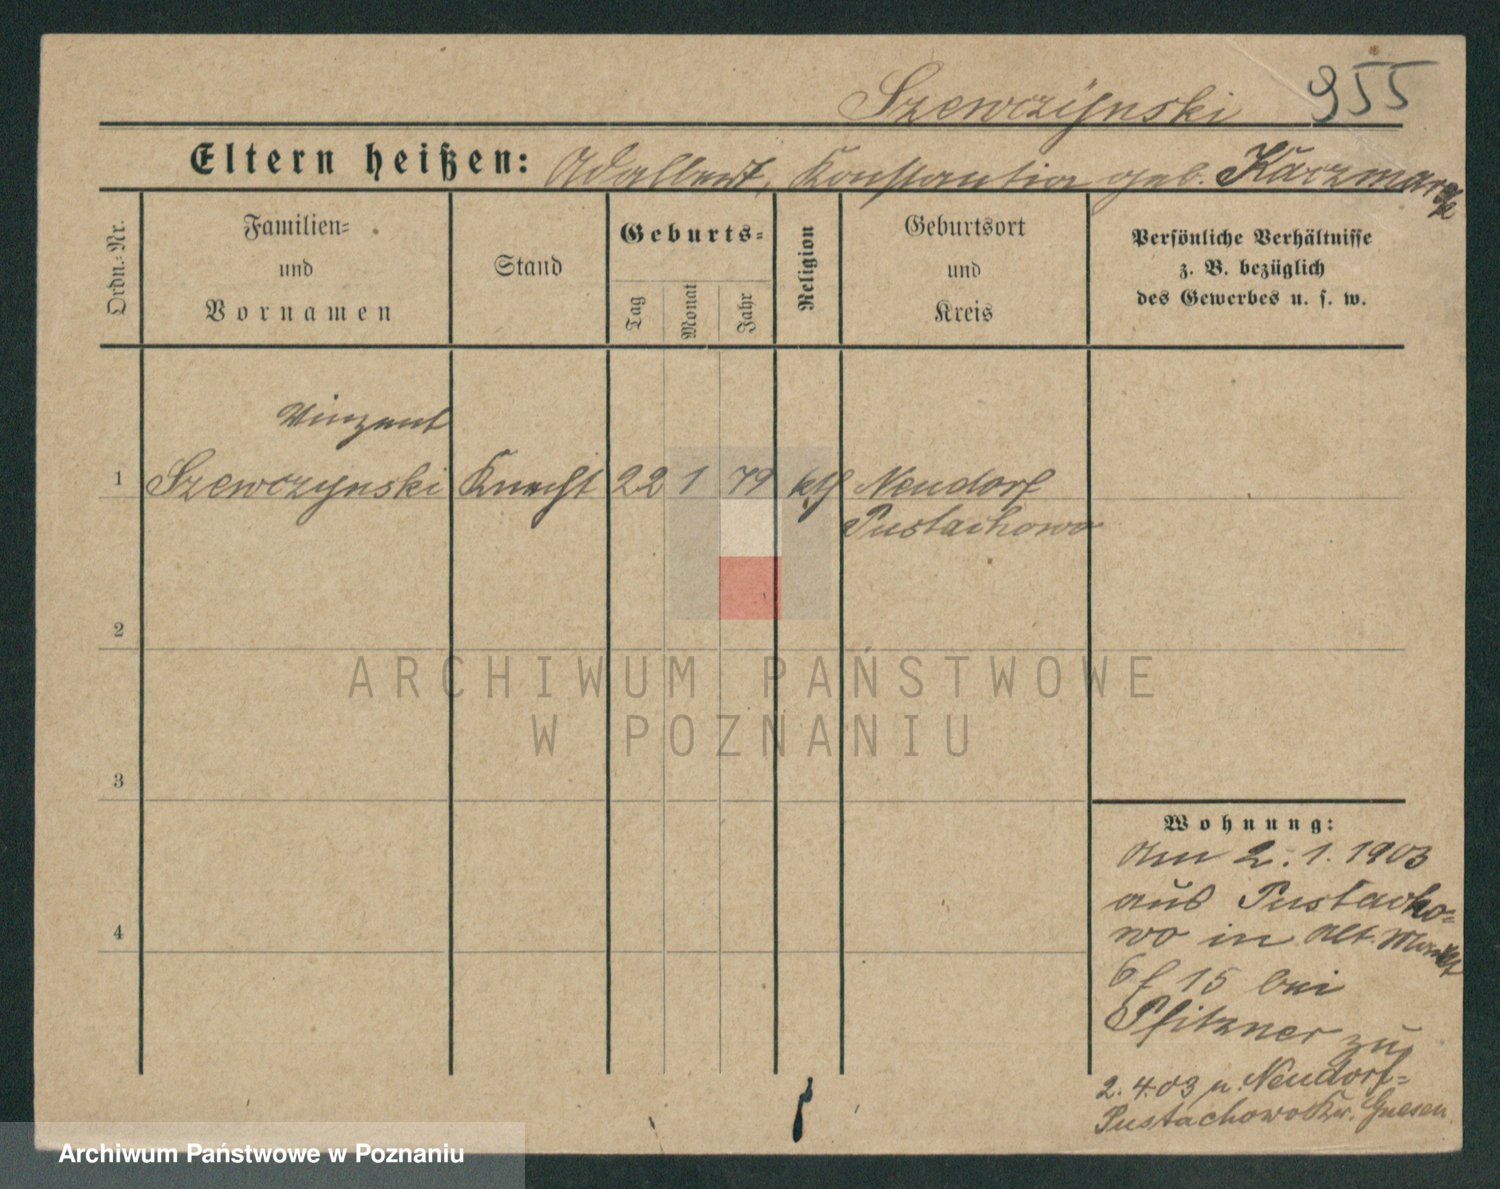 Szewczÿnski 955
Eltern heißen: Adalbert, Konstantia geb. Kaczmarek
Ordn.-Nr.
Familien-
und
Vornamen
Stand
Geburts-
Tag
Monat
Jahr
Religion
Geburtsort
und
Kreis
Persönliche Verhältnisse
z. B. bezüglich
des Gewerbes u. s. w.
Vinzent
1 Szewczynski Knecht 22 1 79 kth Neudorf
Pustachowo
2
3
4
ARCHIWUM PAŃSTWOWE
W POZNANIU
Wohnung:
Am 2. 1. 1903
aus Pustacho-
wo in Alt. Markt
6/ 15 bei
Pfitzner zu
2. 4. 03 n. Neudorf-
Pustachowo Kr. Gnesen
Archiwum Państwowe w Poznaniu